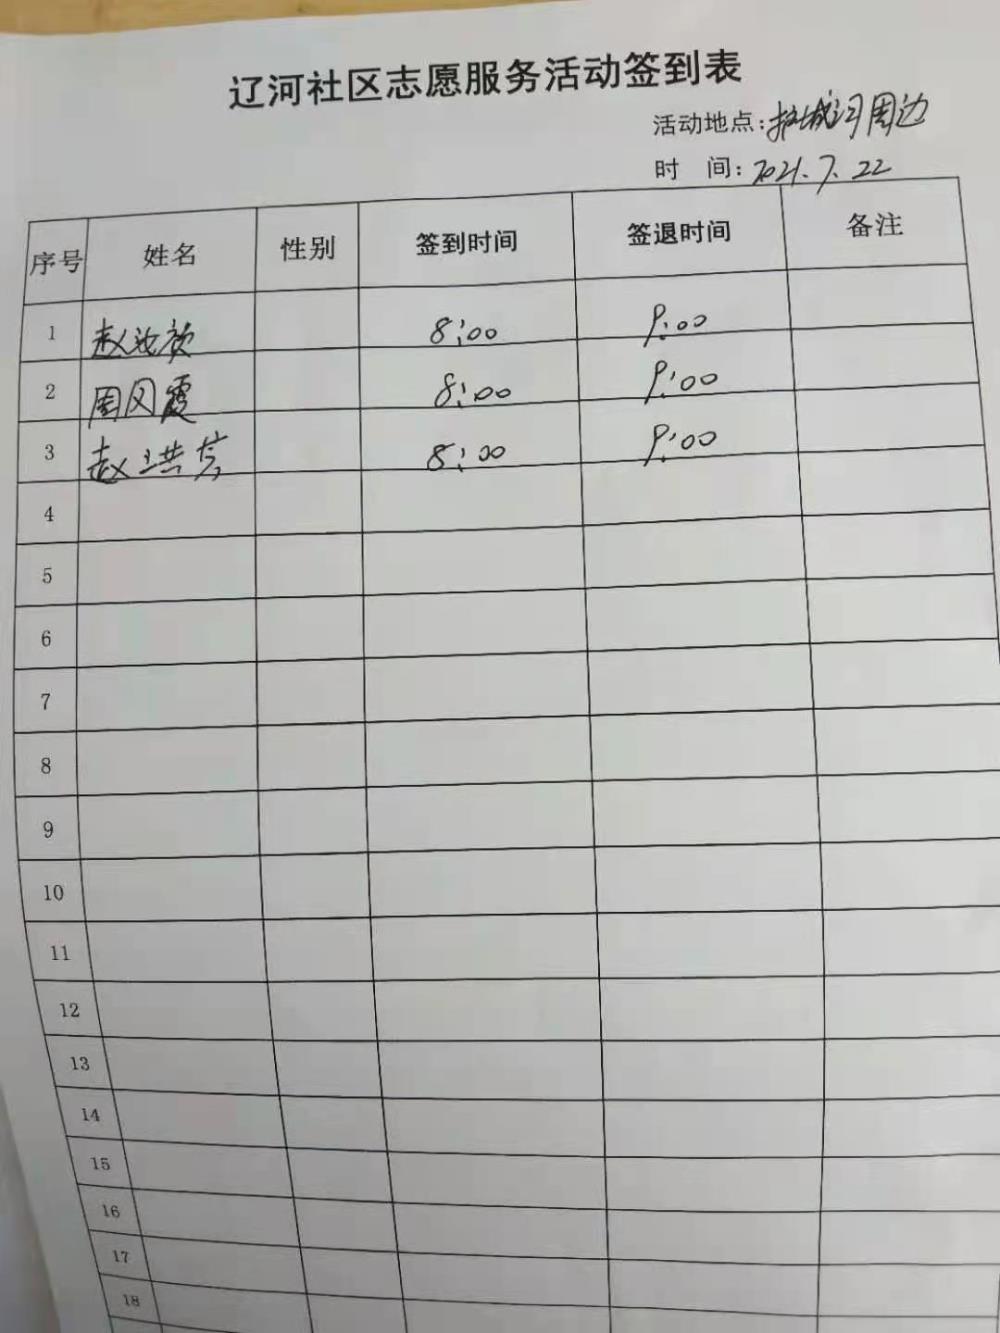 辽河社区志愿服务活动签到表
活动地点:护城河周边
时 间:2021.7.22
序号 姓名 性别 签到时间 签退时间 备注
1 赵 8:00 9:00
2 周凤霞 8:00 9:00
3 赵洪 8:00 9:00
4
5
6
7
8
9
10
11
12
13
14
15
16
17
18